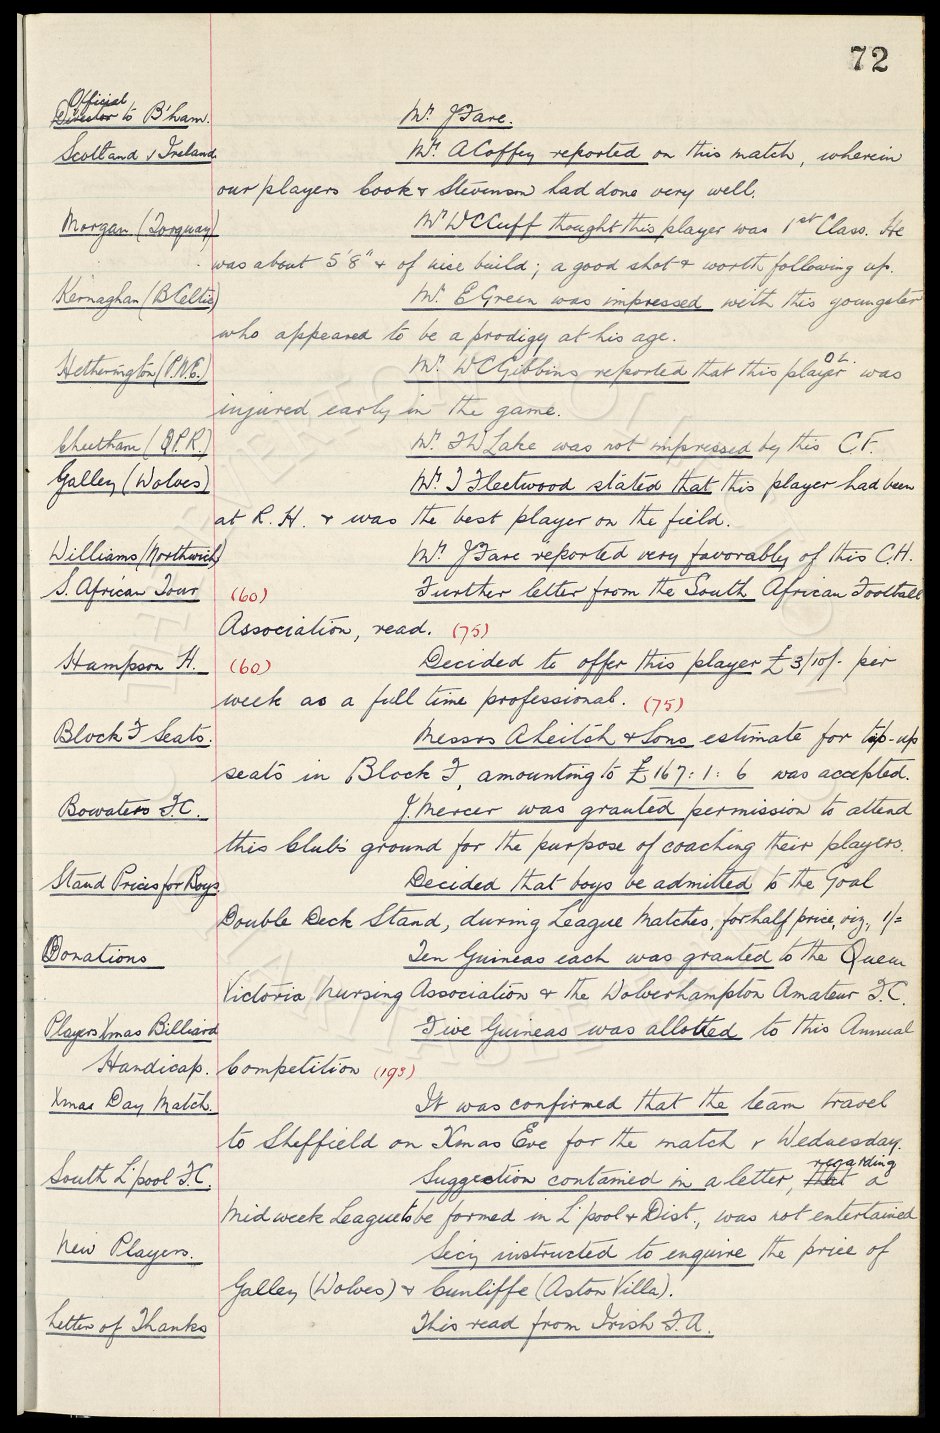 72
Official
Director to B'ham. Mr. J Fare.
Scotland v Ireland Mr. A Coffey reported on this match, wherein
our players Cook & Stevenson had done very well.
Morgan (Torquay) Mr. W C Cuff thought this player was 1st Class. He
was about 5'8" & of nice build; a good shot & worth following up.
Kernaghan (B Celtic) Mr. E Green was impressed with this youngster
who appeared to be a prodigy at his age.
Hetherington (P.N.E.) Mr. W C Gibbins reported that this player O.L. was
injured early in the game.
Cheetham (Q.P.R.) Mr. F W Lake was not impressed by this C.F.
Galley (Wolves) Mr. T Fleetwood stated that this player had been
at R.H. & was the best player on the field.
Williams (Northwich) Mr. J Fare reported very favorably of this C.H.
S. African Tour (60) Further letter from the South African Football
Association, read. (75)
Hampson H. (60) Decided to offer this player £3/10/- per
week as a full time professional. (75)
Block F Seats. Messrs A Leitch & Sons estimate for tip-up
seats in Block F, amounting to £167:1:6 was accepted.
Bowaters F.C. J. Mercer was granted permission to attend
this Club's ground for the purpose of coaching their players.
Stand Prices for Boys Decided that boys be admitted to the Goal
Double Deck Stand, during League Matches, for half price, viz., 1/=
Donations Ten Guineas each was granted to the Queen
Victoria Nursing Association & the Wolverhampton Amateur F.C.
Players Xmas Billiard Five Guineas was allotted to this Annual
Handicap. Competition (193)
Xmas Day Match. It was confirmed that the team travel
to Sheffield on Xmas Eve for the match v Wednesday.
South L'pool F.C. Suggestion contained in a letter, that regarding a
Midweek League to be formed in L'pool & Dist., was not entertained
New Players. Secy instructed to enquire the price of
Galley (Wolves) & Cunliffe (Aston Villa).
Letter of Thanks This read from Irish F.A.